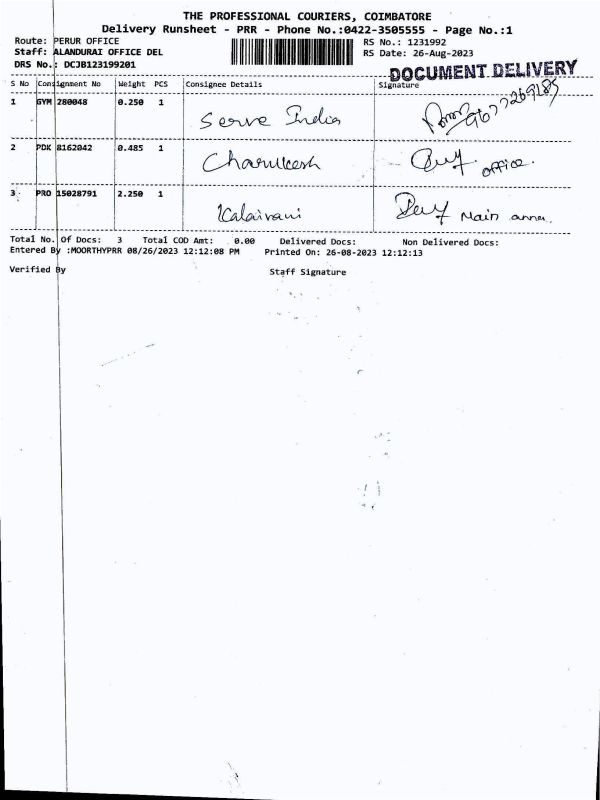 THE PROFESSIONAL COURIERS, COIMBATORE
Delivery Runsheet - PRR - Phone No.:0422-3505555 - Page No.:1
Route: PERUR OFFICE RS No.: 1231992
Staff: ALANDURAI OFFICE DEL RS Date: 26-Aug-2023
DRS No.: DCJB123199201
DOCUMENT DELIVERY
S No Consignment No Weight PCS Consignee Details Signature
1 GYM 280048 0.250 1 Serve India 9677269185
2 PDK 8162042 0.485 1 Charukesh office.
3 PRO 15028791 2.250 1 Kalaivani Main
Total No. Of Docs: 3 Total COD Amt: 0.00 Delivered Docs: Non Delivered Docs:
Entered By :MOORTHYPRR 08/26/2023 12:12:08 PM Printed On: 26-08-2023 12:12:13
Verified By Staff Signature